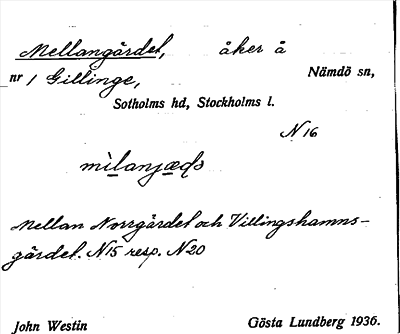 Mellangärdet, åker å
nr 1 Gillinge, Nämdö sn,
Sotholms hd, Stockholms l.
N16
mìlanjæḍs
Mellan Norrgärdet och Villingshamns-
gärdet. N15 resp. N20
John Westin Gösta Lundberg 1936.